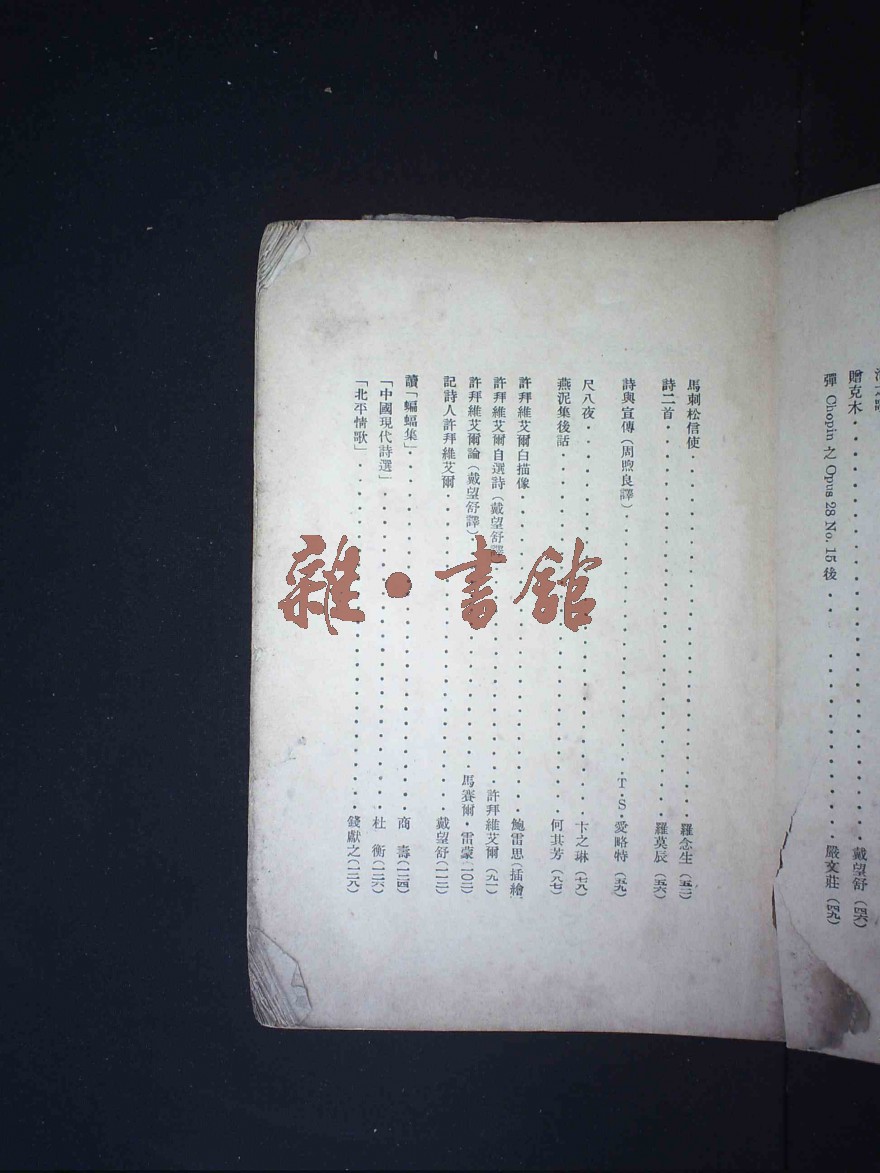 贈克木・・・・・・・・・・・・・・・・戴望舒(四六)
彈 Chopin 之 Opus 28 No. 15 後・・・・・・・・・・嚴文莊(四九)
馬刺松信使・・・・・・・・・・・・・・・・羅念生(五二)
詩二首・・・・・・・・・・・・・・・・羅莫辰(五六)
詩與宣傳(周煦良譯)・・・・・・・・・・・・T・S・愛略特(五九)
尺八夜・・・・・・・・・・・・・・・・卞之琳(七九)
燕泥集後話・・・・・・・・・・・・・・・・何其芳(八七)
許拜維艾爾白描像・・・・・・・・・・・・鮑雷思(插繪)
許拜維艾爾自選詩(戴望舒譯)・・・・・・・・許拜維艾爾(九一)
許拜維艾爾論(戴望舒譯)・・・・・・・・馬賽爾・雷蒙(一〇二)
記詩人許拜維艾爾・・・・・・・・・・・・戴望舒(一一二)
讀「蝙蝠集」・・・・・・・・・・・・・・・・商 壽(一二四)
「中國現代詩選」・・・・・・・・・・・・杜 衡(一二六)
「北平情歌」・・・・・・・・・・・・・・・・錢獻之(一二九)
雜・書館